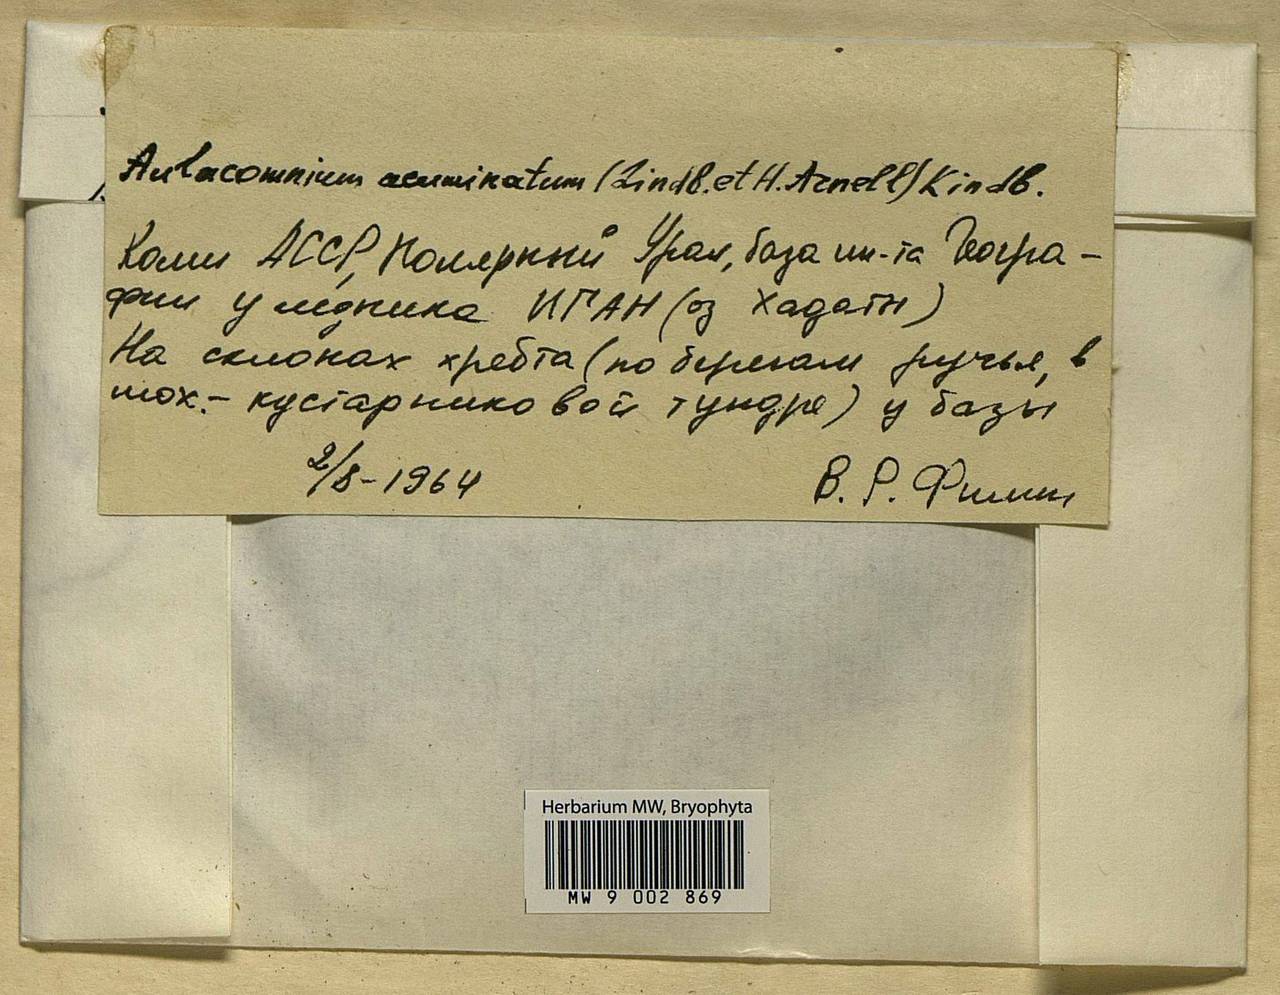 Aulacomnium acuminatum (Lindb. et H. Arnell) Kindb.
Коми АССР, Полярный Урал, база ин-та Геогра-
фии у ледника ИГАН (оз Хадаты)
На склонах хребта (по берегам ручья, в
мох.- кустарниковой тундре) у базы
2/8-1964
В. Р. Филин
Herbarium MW, Bryophyta
MW 9 002 869